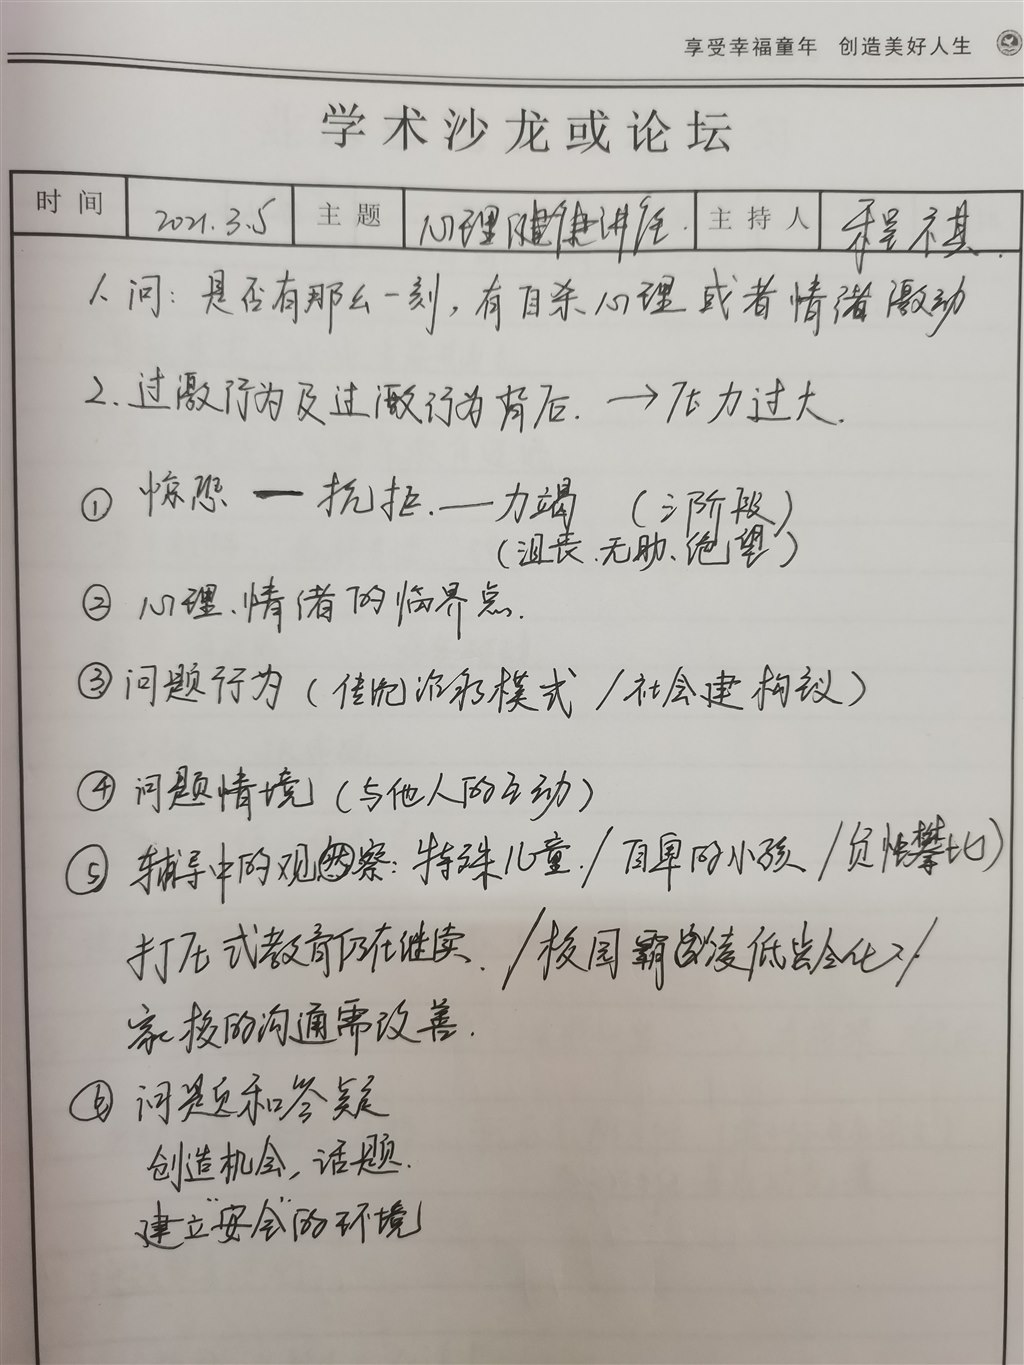 享受幸福童年 创造美好人生
学术沙龙或论坛
时间 2021.3.5 主题 心理健康讲座. 主持人 程祺.
1. 问：是否有那么一刻，有自杀心理或者情绪激动
2. 过激行为及过激行为背后. →压力过大.
① 惊恐 — 抗拒. — 力竭 （三阶段）
（沮丧、无助、绝望）
② 心理、情绪的临界点.
③ 问题行为（传统 模式 / 社会建构议）
④ 问题情境（与他人的互动）
⑤ 辅导中的观察：特殊儿童. / 自卑的小孩 / 负性攀比）
打压式教育仍在继续. / 校园霸凌低龄化 /
家校的沟通需改善.
⑥ 问题和答疑
创造机会，话题.
建立“安全”的环境